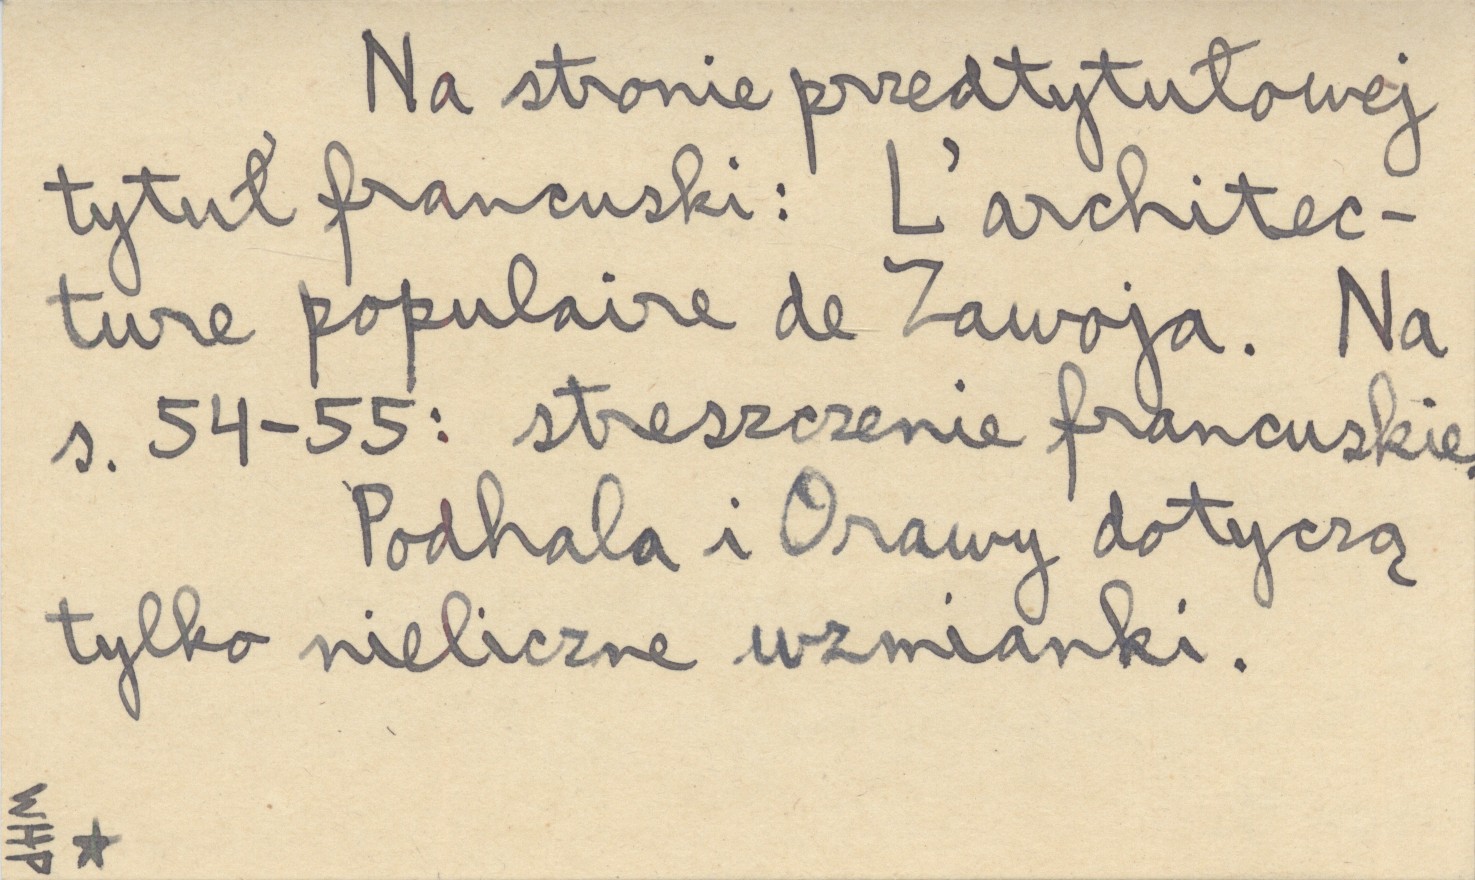 Na stronie przedtytułowej
tytuł francuski: L'architec-
ture populaire de Zawoja. Na
s. 54-55: streszczenie francuskie.
Podhala i Orawy dotyczą
tylko nieliczne wzmianki.
WHP